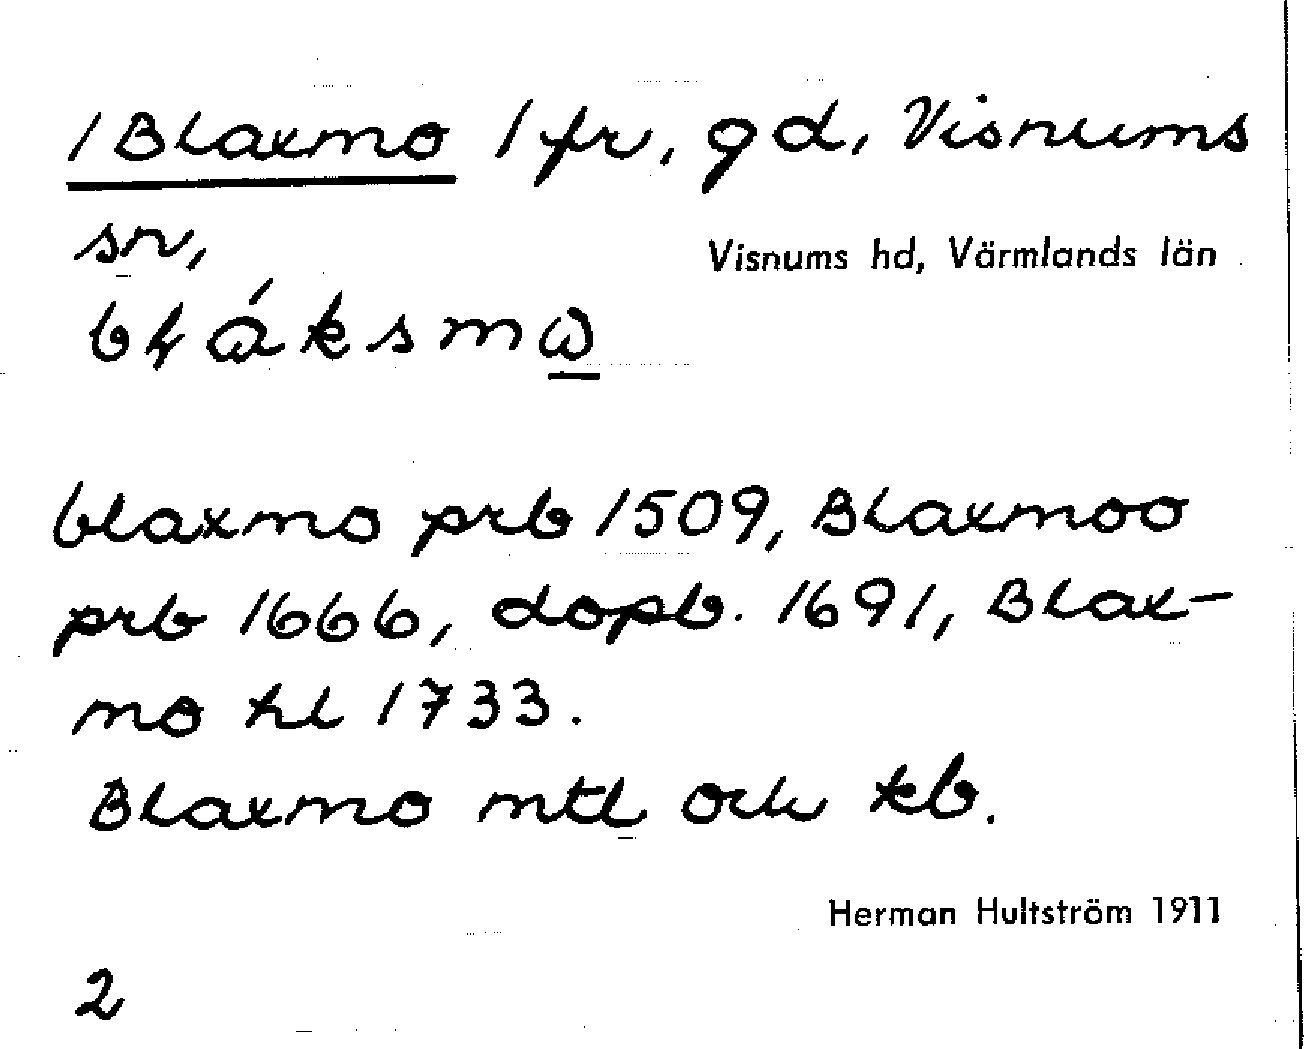 1 Blaxmo 1 fr, gd, Visnums
sn,
Visnums hd, Värmlands län
blaxmo prb 1509, Blaxmoo
prb 1666, dopb. 1691, Blax-
mo hl 1733.
Blaxmo mtl och kb.
Herman Hultström 1911
2